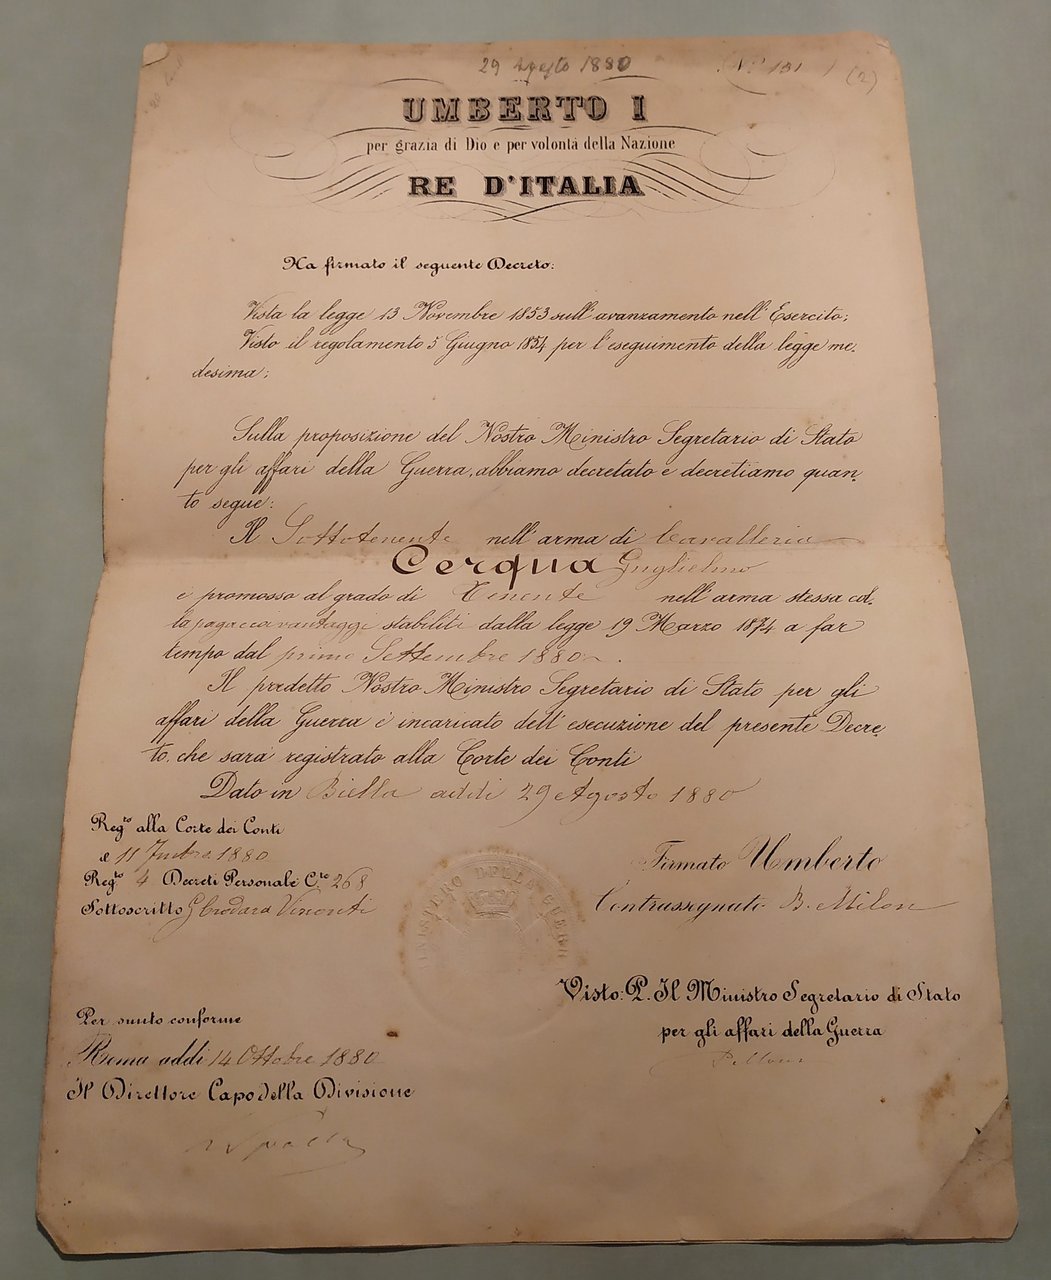 29 Agosto 1880
N° 131 (2)
UMBERTO I
per grazia di Dio e per volontà della Nazione
RE D'ITALIA
Ha firmato il seguente Decreto:
Vista la legge 13 Novembre 1853 sull'avanzamento nell'Esercito;
Visto il regolamento 5 Giugno 1854 per l'eseguimento della legge me-
desima;
Sulla proposizione del Nostro Ministro Segretario di Stato
per gli affari della Guerra, abbiamo decretato e decretiamo quan-
to segue:
Il Sottotenente nell'arma di Cavalleria
Cerqua Guglielmo
è promosso al grado di Tenente nell'arma stessa col-
la paga e coi vantaggi stabiliti dalla legge 19 Marzo 1874 a far
tempo dal primo Settembre 1880.
Il predetto Nostro Ministro Segretario di Stato per gli
affari della Guerra è incaricato dell'esecuzione del presente Decre-
to, che sarà registrato alla Corte dei Conti
Dato in Biella addì 29 Agosto 1880
Regto alla Corte dei Conti
il 11 7mbre 1880
Regto 4 Decreti Personale Cte 268
Sottoscritto
Firmato Umberto
Contrassegnato B. Milon
MINISTERO DELLA GUERRA
Visto: P. Il Ministro Segretario di Stato
per gli affari della Guerra
Pelloux
Per sunto conforme
Roma addì 14 Ottobre 1880
Il Direttore Capo della Divisione